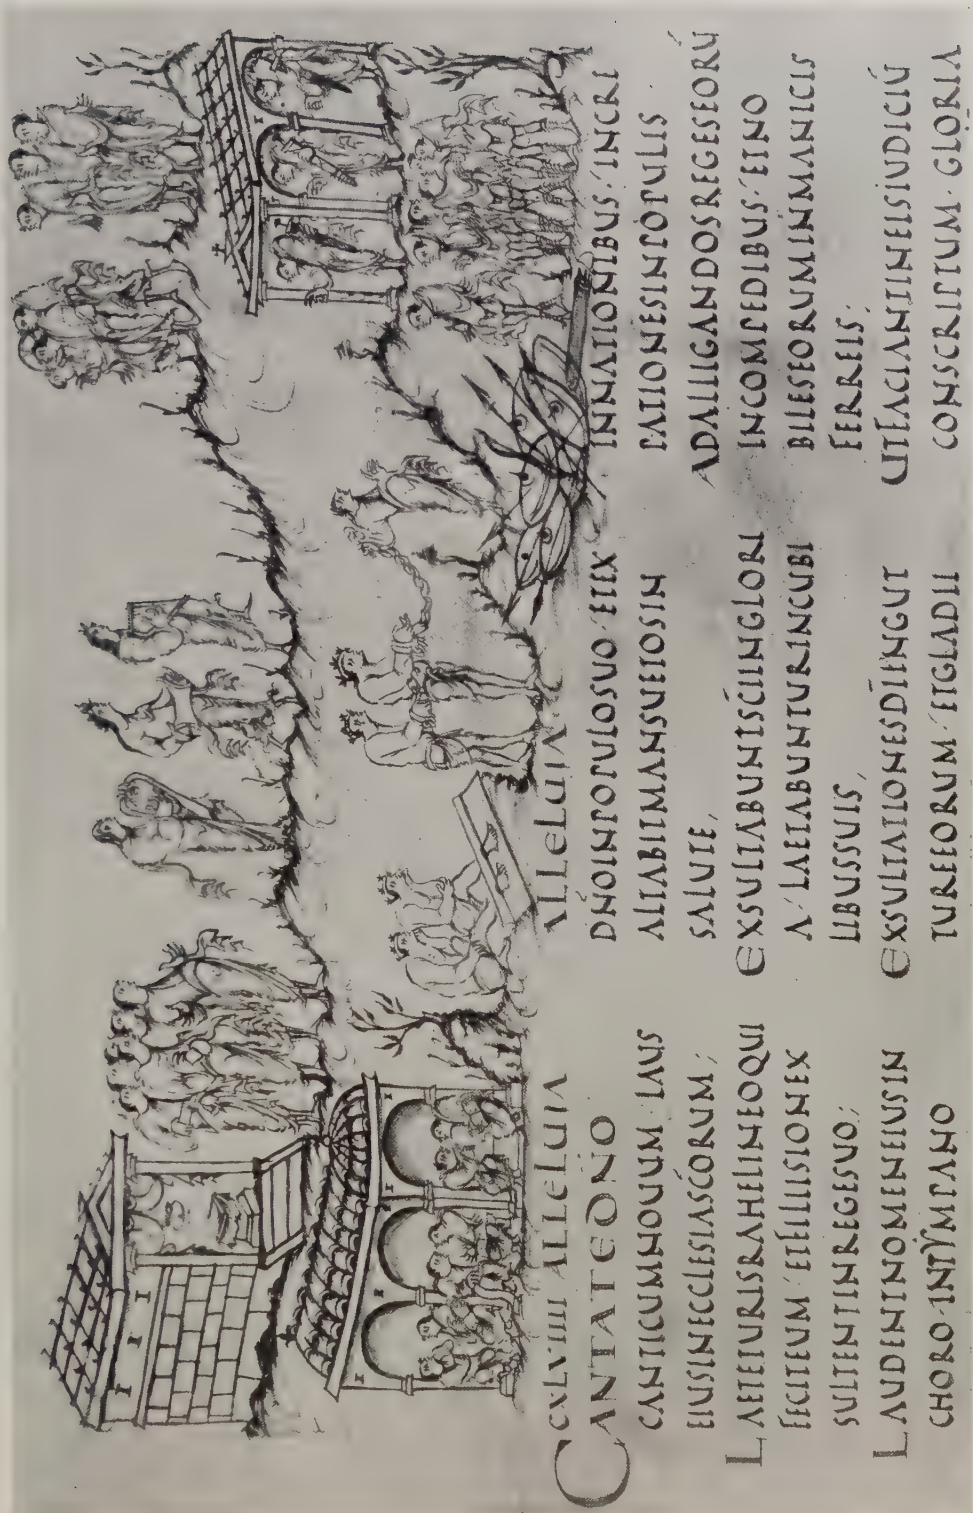 CXLVIIII ALLELUIA ALLELUIA
CANTATEDN̄O
CANTICUMNOUUM·LAUS
EIUSINECCLESIASC̄ORUM;
LAETETURISRAHELINEOQUI
FECITEUM·ETFILIISIONEX
SULTENTINREGESUO;
LAUDENTNOMENEIUSIN
CHORO·INTYMPANO
DN̄OINPOPULOSUO·ETEX
ALTABITMANSUETOSIN
SALUTE,
EXSULTABUNTSC̄IINGLORI
A·LAETABUNTURINCUBI
LIBUSSUIS,
EXSULTATIONESDĪINGUT
TUREEORUM·ETGLADII
INNATIONIBUS·INCRE
PATIONESINPOPULIS
ADALLIGANDOSREGESEORŪ
INCOMPEDIBUS·ETNO
BILESEORUMINMANICIS
FERREIS;
UTFACIANTINEISIUDICIŪ
CONSCRIPTUM·GLORIA